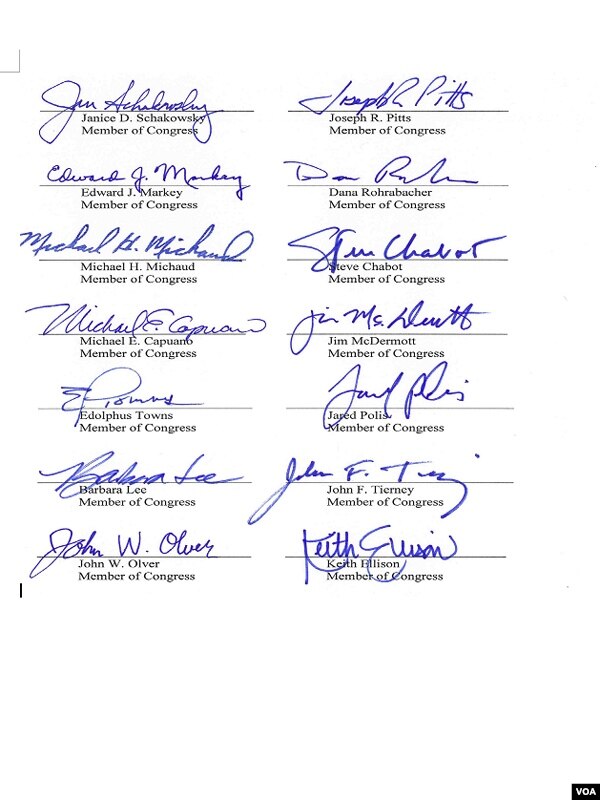 Jan Schakowsky
Janice D. Schakowsky
Member of Congress
Joseph R Pitts
Joseph R. Pitts
Member of Congress
Edward J. Markey
Edward J. Markey
Member of Congress
Dana Rohrabacher
Member of Congress
Michael H. Michaud
Michael H. Michaud
Member of Congress
Steve Chabot
Steve Chabot
Member of Congress
Michael E. Capuano
Michael E. Capuano
Member of Congress
Jim McDermott
Jim McDermott
Member of Congress
E Towns
Edolphus Towns
Member of Congress
Jared Polis
Jared Polis
Member of Congress
Barbara Lee
Barbara Lee
Member of Congress
John F. Tierney
John F. Tierney
Member of Congress
John W. Olver
John W. Olver
Member of Congress
Keith Ellison
Keith Ellison
Member of Congress
VOA